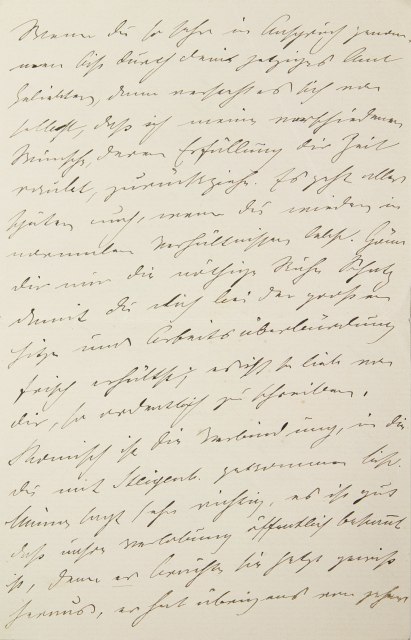 Wenn du so sehr in Anspruch genom-
men bist durch dein jetziges Amt
Geliebter, dann versteht es sich von
selbst, daß ich meine verschiedenen
Wünsche, deren Erfüllung dir Zeit
raubt, zurückziehe. Es geht alles
später auch, wenn du wieder in
normalen Verhältnissen lebst. Gönn
dir nur die nöthige Ruhe Schatz
damit du dich bei der großen
Hitze und Arbeitsüberbürdung
frisch erhältst; es ist so lieb von
dir, so ordentlich zu schreiben.
Komisch ist die Verbindung, in die
du mit Steigenb. gekommen bist.
sagt sehr richtig, es ist gut
daß unsre Verlobung öffentlich bekannt
ist, denn er brächte sie jetzt gewiß
heraus, er hat übrigens von